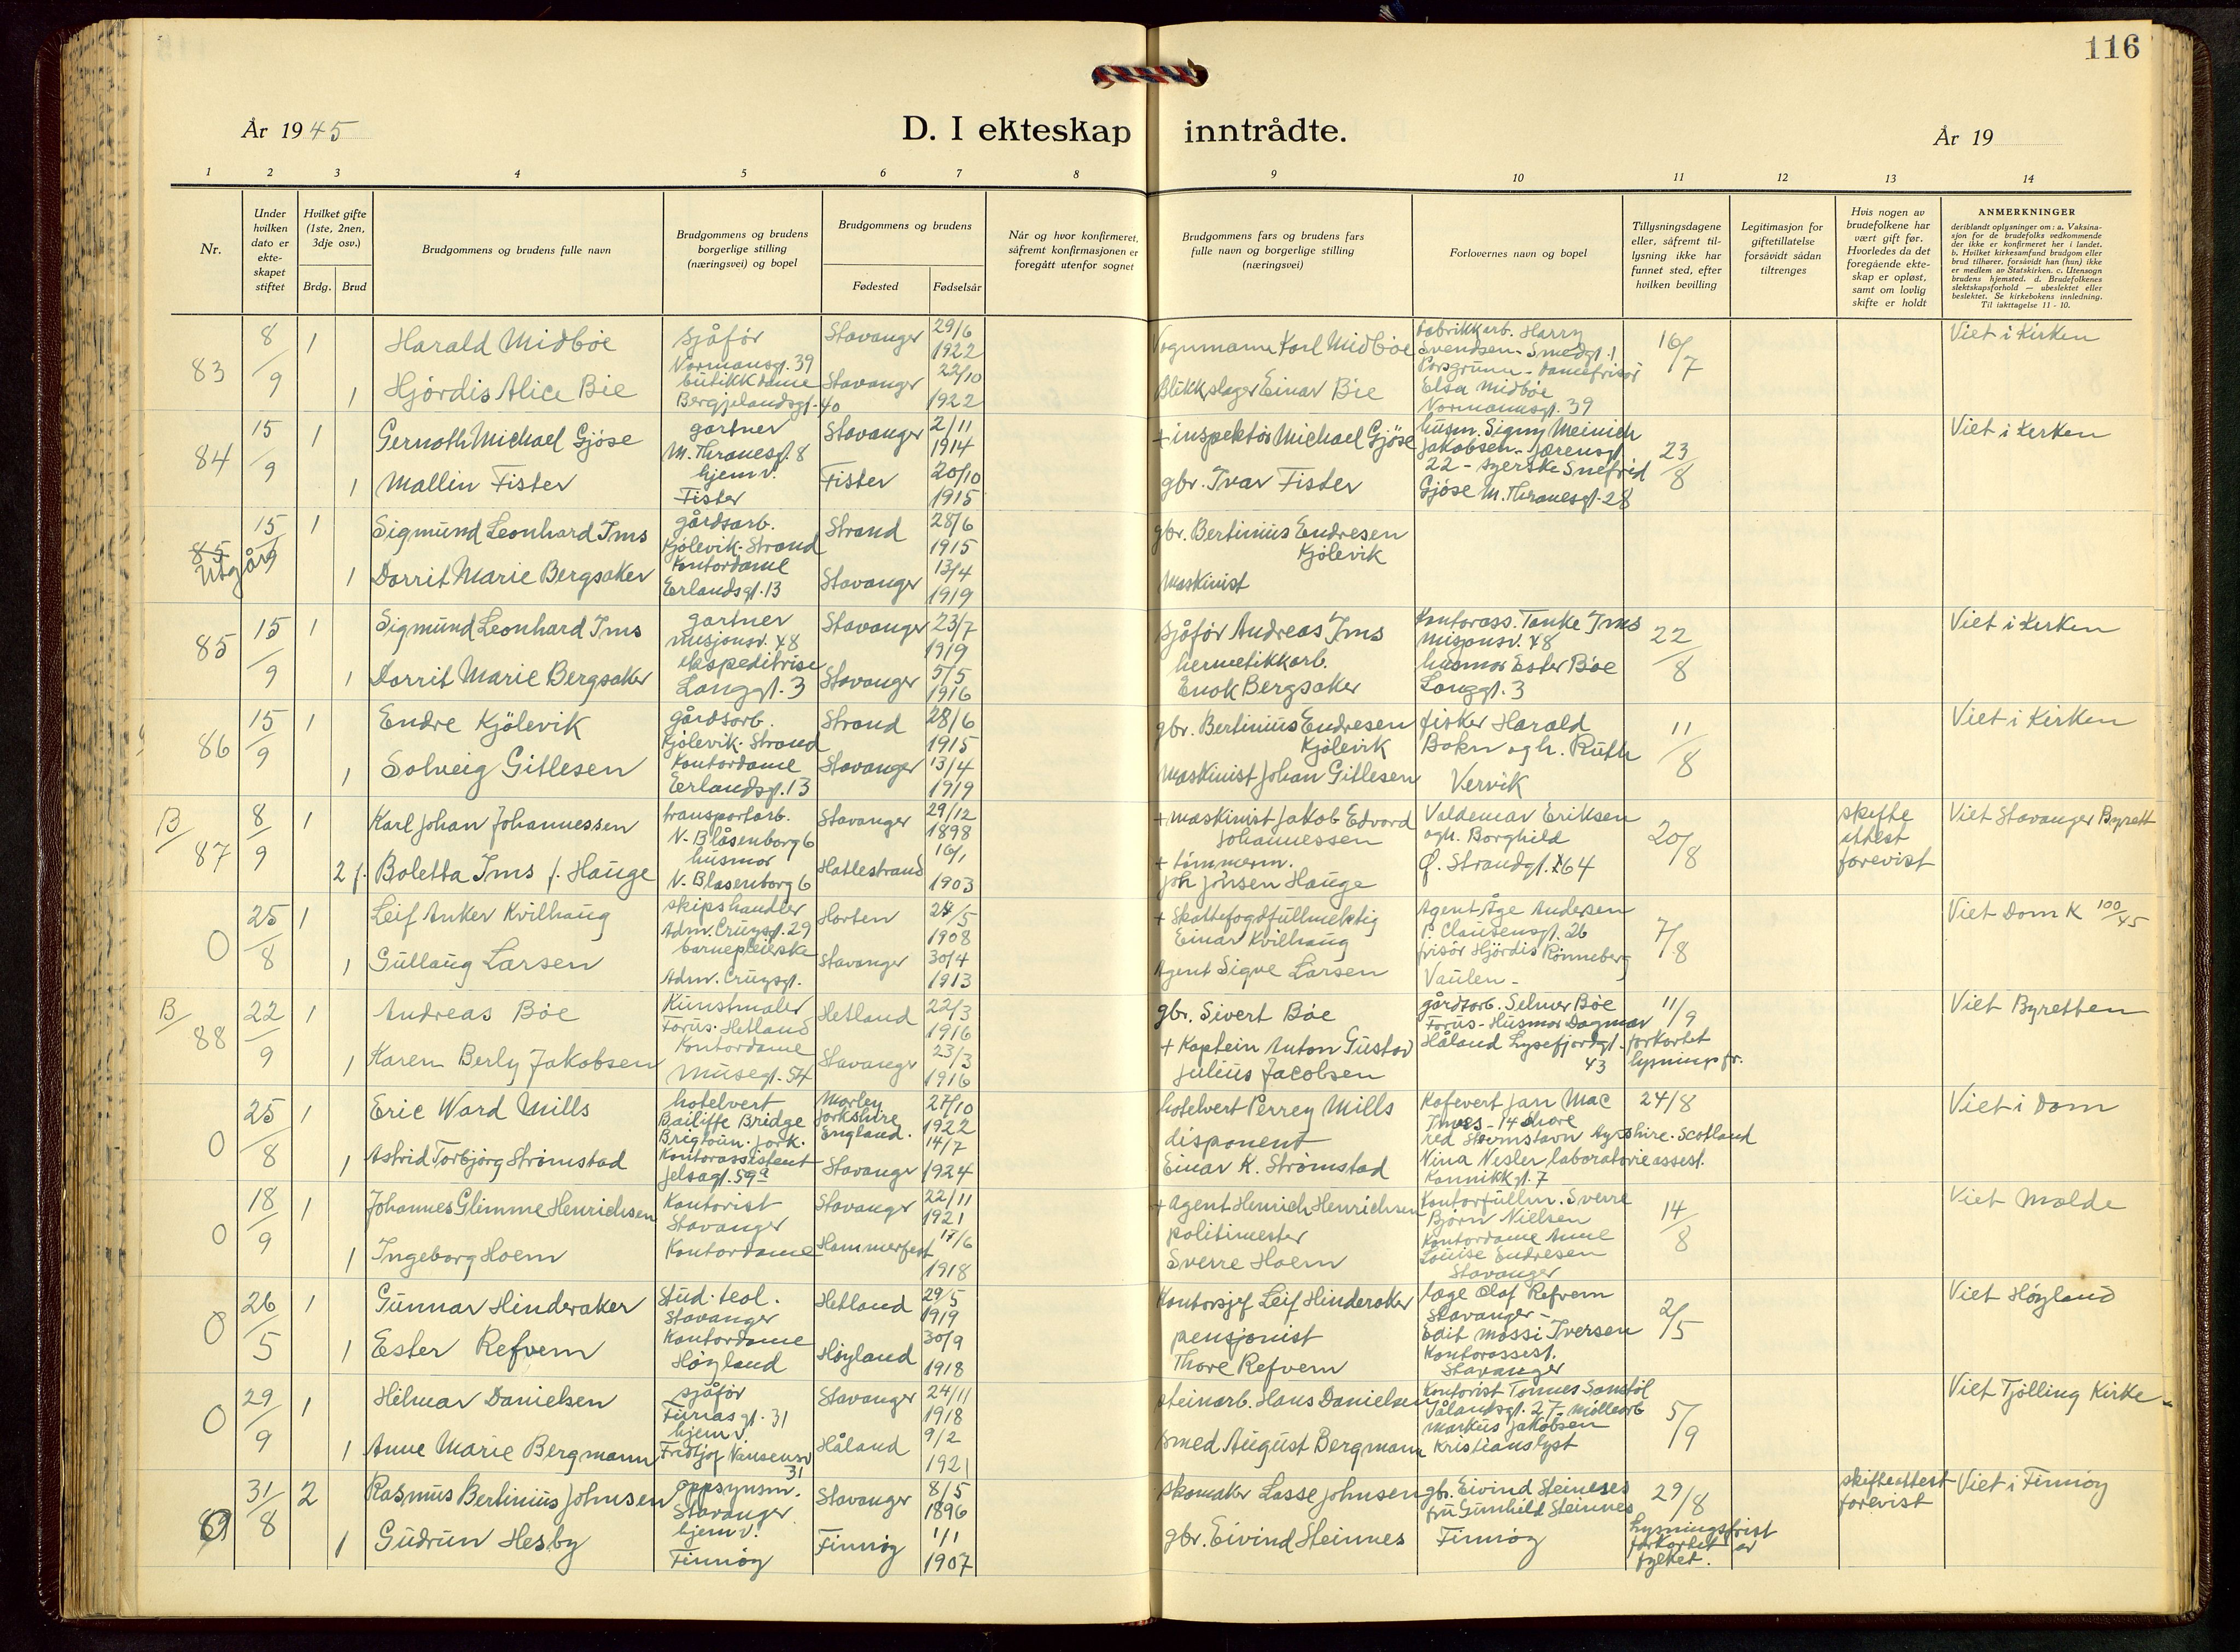 116
År 1945
D. I ekteskap inntrådte.
År 19
1 2 3 4 5 6 7 8 9 10 11 12 13 14
Nr.
Under hvilken dato er ekte- skapet stiftet
Hvilket gifte (1ste, 2nen, 3dje osv.)
Brdg. Brud
Brudgommens og brudens fulle navn
Brudgommens og brudens borgerlige stilling (næringsvei) og bopel
Brudgommens og brudens
Fødested Fødselsår
Når og hvor konfirmeret, såfremt konfirmasjonen er foregått utenfor sognet
Brudgommens fars og brudens fars fulle navn og borgerlige stilling (næringsvei)
Forlovernes navn og bopel
Tillysningsdagene eller, såfremt til- lysning ikke har funnet sted, efter hvilken bevilling
Legitimasjon for giftetillatelse forsåvidt sådan tiltrenges
Hvis nogen av brudefolkene har vært gift før. Hvorledes da det foregående ekte- skap er opløst, samt om lovlig skifte er holdt
ANMERKNINGER
deriblandt oplysninger om: a. Vaksina- sjon for de brudefolks vedkommende der ikke er konfirmeret her i landet. b. Hvilket kirkesamfund brudgom eller brud tilhører, forsåvidt han (hun) ikke er medlem av Statskirken. c. Utensogn brudens hjemsted. d. Brudefolkenes slektskapsforhold — ubeslektet eller beslektet. Se kirkebokens innledning. Til iakttagelse 11 - 10.
83 8/9 1 Harald Midbøe sjåfør Normansgt. 39 Stavanger 29/6 1922 Vognmann Karl Midbøe fabrikkarb. Harry Svendsen - Smedgt. 1 16/7 Viet i Kirken
1 Hjördis Alice Bie butikkdame Bergjelandsgt. 40 Stavanger 22/10 1922 Blikkslager Einar Bie Porsgrunn - Damefrisör Elsa Midbøe Normannsgt. 39
84 15/9 1 Gernoth Michael Gjöse gartner M. Thranesgt. 8 Stavanger 2/11 1914 + inspektör Michael Gjöse husm. Signy Meinich Jakobsen - Jærensgt 23/8 Viet i Kirken
1 Mallin Fister hjemv. Fister Fister 20/10 1915 gbr. Ivar Fister 22 - syerske Snefrid Gjöse M. Thranesgt. 28
85 Utgår 15/9 1 Sigmund Leonhard Ims gårdsarb. Kjölevik - Strand Strand 28/6 1915 gbr. Bertinius Endresen Kjölevik
1 Dorrit Marie Bergsaker Kontordame Erlandsgt. 13 Stavanger 13/4 1919 Maskinist
85 15/9 1 Sigmund Leonhard Ims gartner Misjonsv. 48 Stavanger 23/7 1919 Sjåför Andreas Ims Kontorass. Tanke Ims Misjonsv. 48 22/8 Viet i Kirken
1 Dorrit Marie Bergsaker ekspeditrise Langgt. 3 Stavanger 5/5 1916 hermetikkarb. Enok Bergsaker husmor Ester Bøe Langgt. 3
86 15/9 1 Endre Kjölevik gårdsarb. Kjölevik - Strand Strand 28/6 1915 gbr. Bertinius Endresen Kjölevik fisker Harald Bokn og h. Ruth 11/8 Viet i Kirken
1 Solveig Gitlesen Kontordame Erlandsgt. 13 Stavanger 13/4 1919 Maskinist Johan Gitlesen Vervik
B/87 8/9 1 Karl Johan Johannessen transportarb. N. Blåsenborg 6 Stavanger 29/12 1898 + maskinist Jakob Edvard Johannessen Valdemar Eriksen og h. Borghild 20/8 skifte attest forevist Viet Stavanger Byrett
2 f. Boletta Ims f. Hauge husmor N. Blasenborg 6 Hatlestrand 16/1 1903 + tömmerm. Joh Johnsen Hauge Ø. Strandgt. 64
0 25/8 1 Leif Anker Kvilhaug skipshandler Adm. Cruysgt. 29 Horten 28/5 1908 + Skattefogdfullmektig Einar Kvilhaug Agent Åge Andersen P. Clausensgt. 26 7/8 Viet Dom K 100/45
1 Gullaug Larsen barnepleierske Adm. Cruysgt. Stavanger 30/4 1913 Agent Sigve Larsen frisör Hjördis Rönneberg Vaulen -
B/88 22/9 1 Andreas Bøe Kunstmaler Forus - Hetland Hetland 22/3 1916 gbr. Sivert Bøe gårdsarb. Selmer Bøe Forus - Husmor Dagmar 11/9 Viet Byretten
1 Karen Berly Jakobsen Kontordame Musegt. 54 Stavanger 23/3 1916 + Kaptein Anton Gustav Julius Jacobsen Håland Lysefjordgt. 43 forkortet lysningsfr.
0 25/8 1 Eric Ward Mills hotelvert Bailiffe Bridge Brighoun. York. Morley Yorkshire England. 27/10 1922 hotelvert Perrey Mills Kafevert Jan Mac 14 Shore Ayrshire. Scotland 24/8 Viet i Dom
1 Astrid Torbjörg Strömstad Kontorassistent Jelsagt. 59a Stavanger 14/7 1924 disponent Einar K. Strömstad Nina Nesler laboratorieassist. Kannikgt. 7
0 18/9 1 Johannes Glimme Henrichsen Kontorist Stavanger Stavanger 22/11 1921 + Agent Henrich Henrichsen Kontorfullm. Sverre Björn Nielsen 14/8 Viet Molde
1 Ingeborg Hoem Kontordame Hammerfest 17/6 1918 politimester Sverre Hoem Kontordame Anne Louise Endresen Stavanger
0 26/5 1 Gunnar Hinderaker Stud. teol. Stavanger Hetland 29/5 1919 Kontorsjef Leif Hinderaker lege Olaf Refvem Stavanger - 2/5 Viet Høyland
1 Ester Refvem Kontordame Høyland Høyland 30/9 1918 pensjonist Thore Refvem Edit Mossi Iversen Kontorassest. Stavanger
0 29/9 1 Hilmar Danielsen sjåför Furrasgt. 31 Stavanger 24/11 1918 steinarb. Hans Danielsen Kontorist Tønnes Sandöl Vålandsgt. 27 - Møllearb 5/9 Viet Tjölling Kirke -
1 Anne Marie Bergmann hjemv. Fridtjof Nansensv 31 Håland 9/2 1921 smed August Bergmann Markus Jakobsen Kristianslyst
0 31/8 2 Rasmus Bertinius Johnsen oppsynsm. Stavanger Stavanger 8/5 1896 skomaker Lasse Johnsen gbr. Eivind Steinnes fru Gunhild Steinnes 29/8 skifteattest forevist Viet i Finnöy
1 Gudrun Hesby hjemv. Finnöy Finnöy 1/1 1907 gbr. Eivind Steinnes Finnöy Lysningsfrist forkortet av fylket.